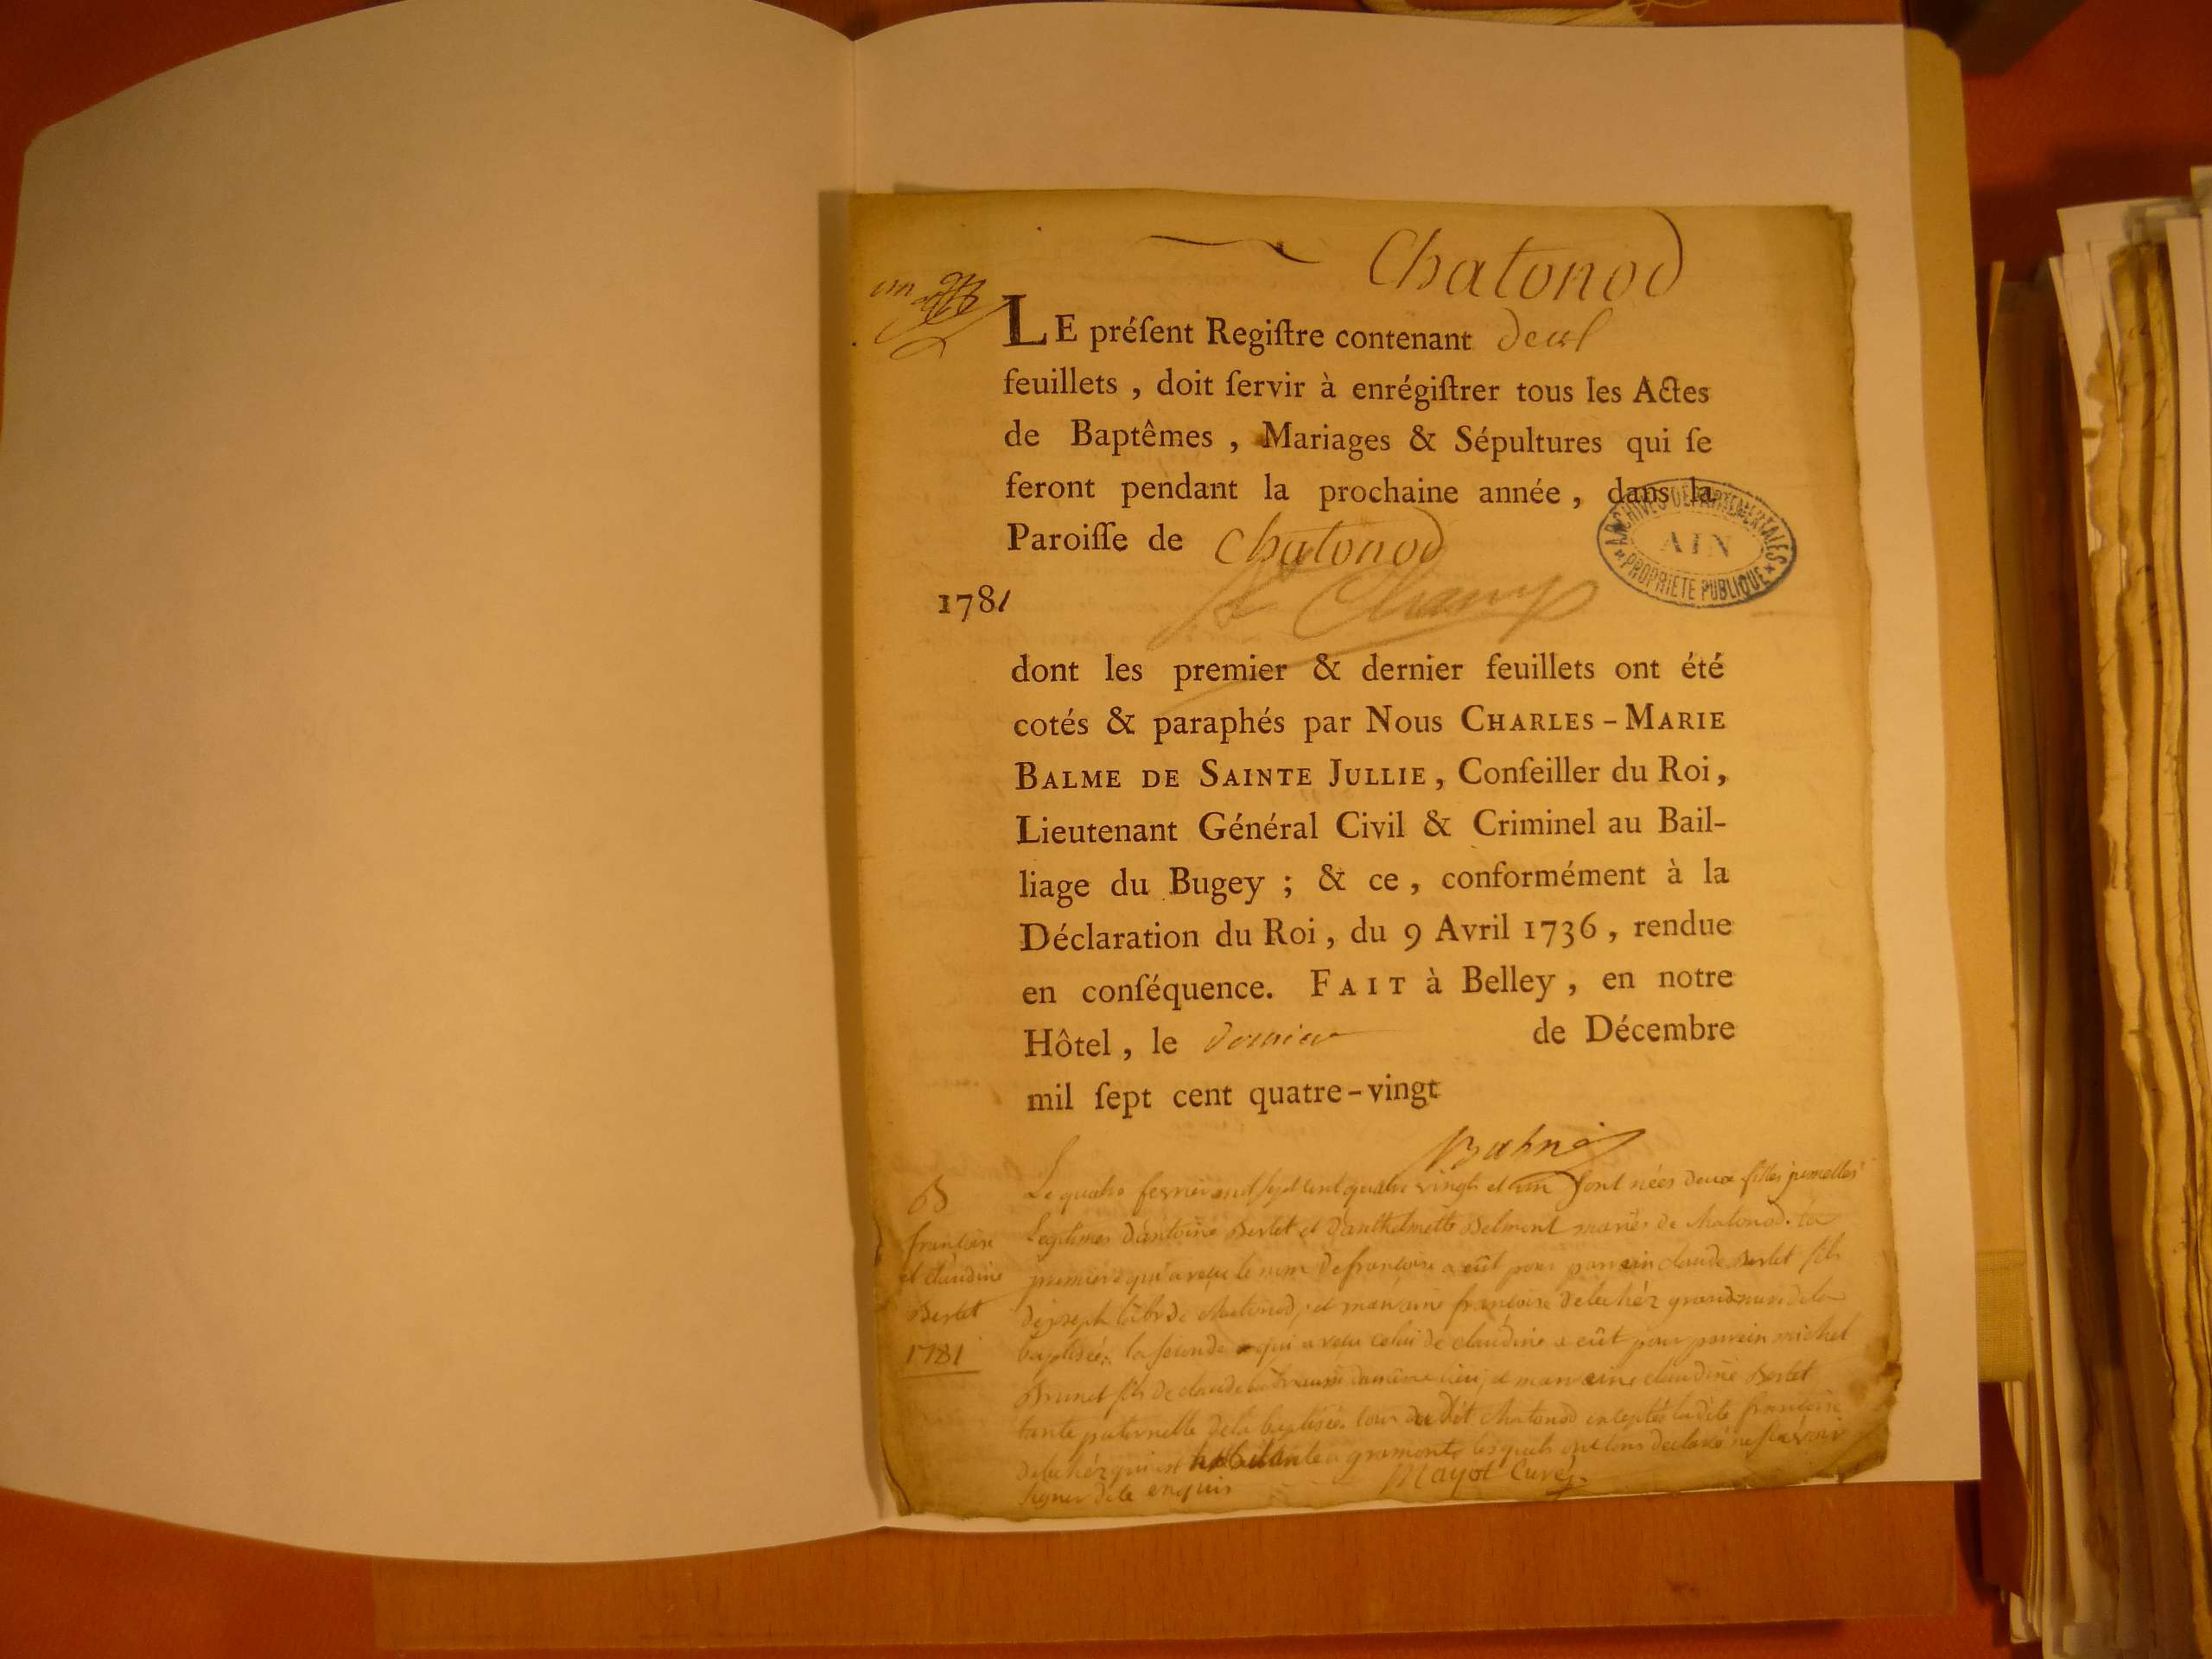 Chatonod
un
LE préſent Regiſtre contenant deux
feuillets , doit ſervir à enrégiſtrer tous les Actes
de Baptêmes , Mariages & Sépultures qui ſe
feront pendant la prochaine année , dans la
Paroiſſe de Chatonod
ARCHIVES DÉPARTEMENTALES
AIN
PROPRIÉTÉ PUBLIQUE
1781
St Champ
dont les premier & dernier feuillets ont été
cotés & paraphés par Nous CHARLES-MARIE
BALME DE SAINTE JULLIE, Conſeiller du Roi,
Lieutenant Général Civil & Criminel au Bail-
liage du Bugey ; & ce , conformément à la
Déclaration du Roi , du 9 Avril 1736 , rendue
en conſéquence. FAIT à Belley , en notre
Hôtel , le dernier de Décembre
mil ſept cent quatre-vingt
Balme
B
françoise
et claudine
Berlet
1781
Le quatre fevrier mil sept cent quatre vingts et un sont nées deux filles jumelles
legitimes d'antoine Berlet et d'anthelmette Belmont mariés de chatonod. La
premiere qui a reçu le nom de françoise a eût pour parrain claude Berlet fils
de joseph de chatonod, et marraine françoise delechéz grandmere de la
baptisée; la seconde qui a reçu celui de claudine a eût pour parrain michel
Brunet fils de claude du même lieu, et marraine claudine Berlet
tante paternelle de la baptisée. tous du dit chatonod exceptée ladite françoise
delechéz qui est habitante a gramont, lesquels ont tous declaré ne sçavoir
signer de ce enquis Mayot Curé.